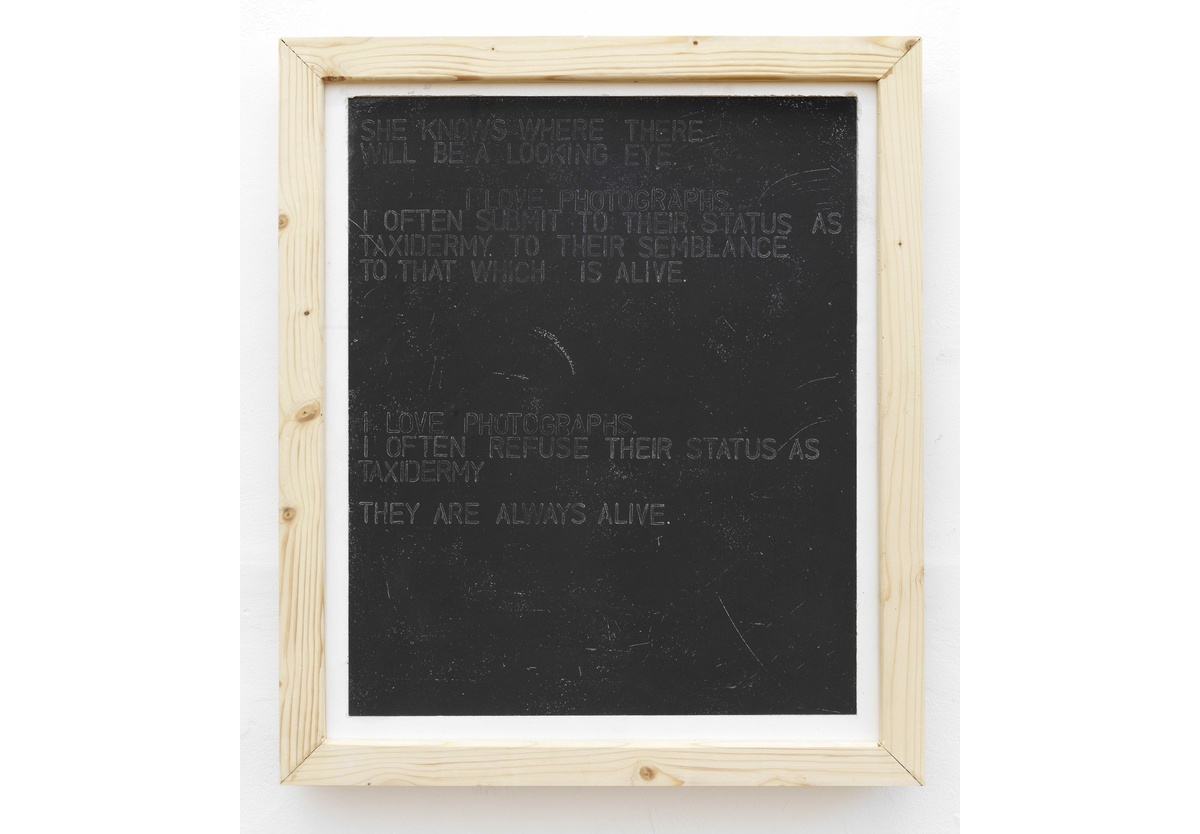 SHE KNOWS WHERE THERE
WILL BE A LOOKING EYE.
I LOVE PHOTOGRAPHS.
I OFTEN SUBMIT TO THEIR STATUS AS
TAXIDERMY. TO THEIR SEMBLANCE
TO THAT WHICH IS ALIVE.
I LOVE PHOTOGRAPHS.
I OFTEN REFUSE THEIR STATUS AS
TAXIDERMY
THEY ARE ALWAYS ALIVE.